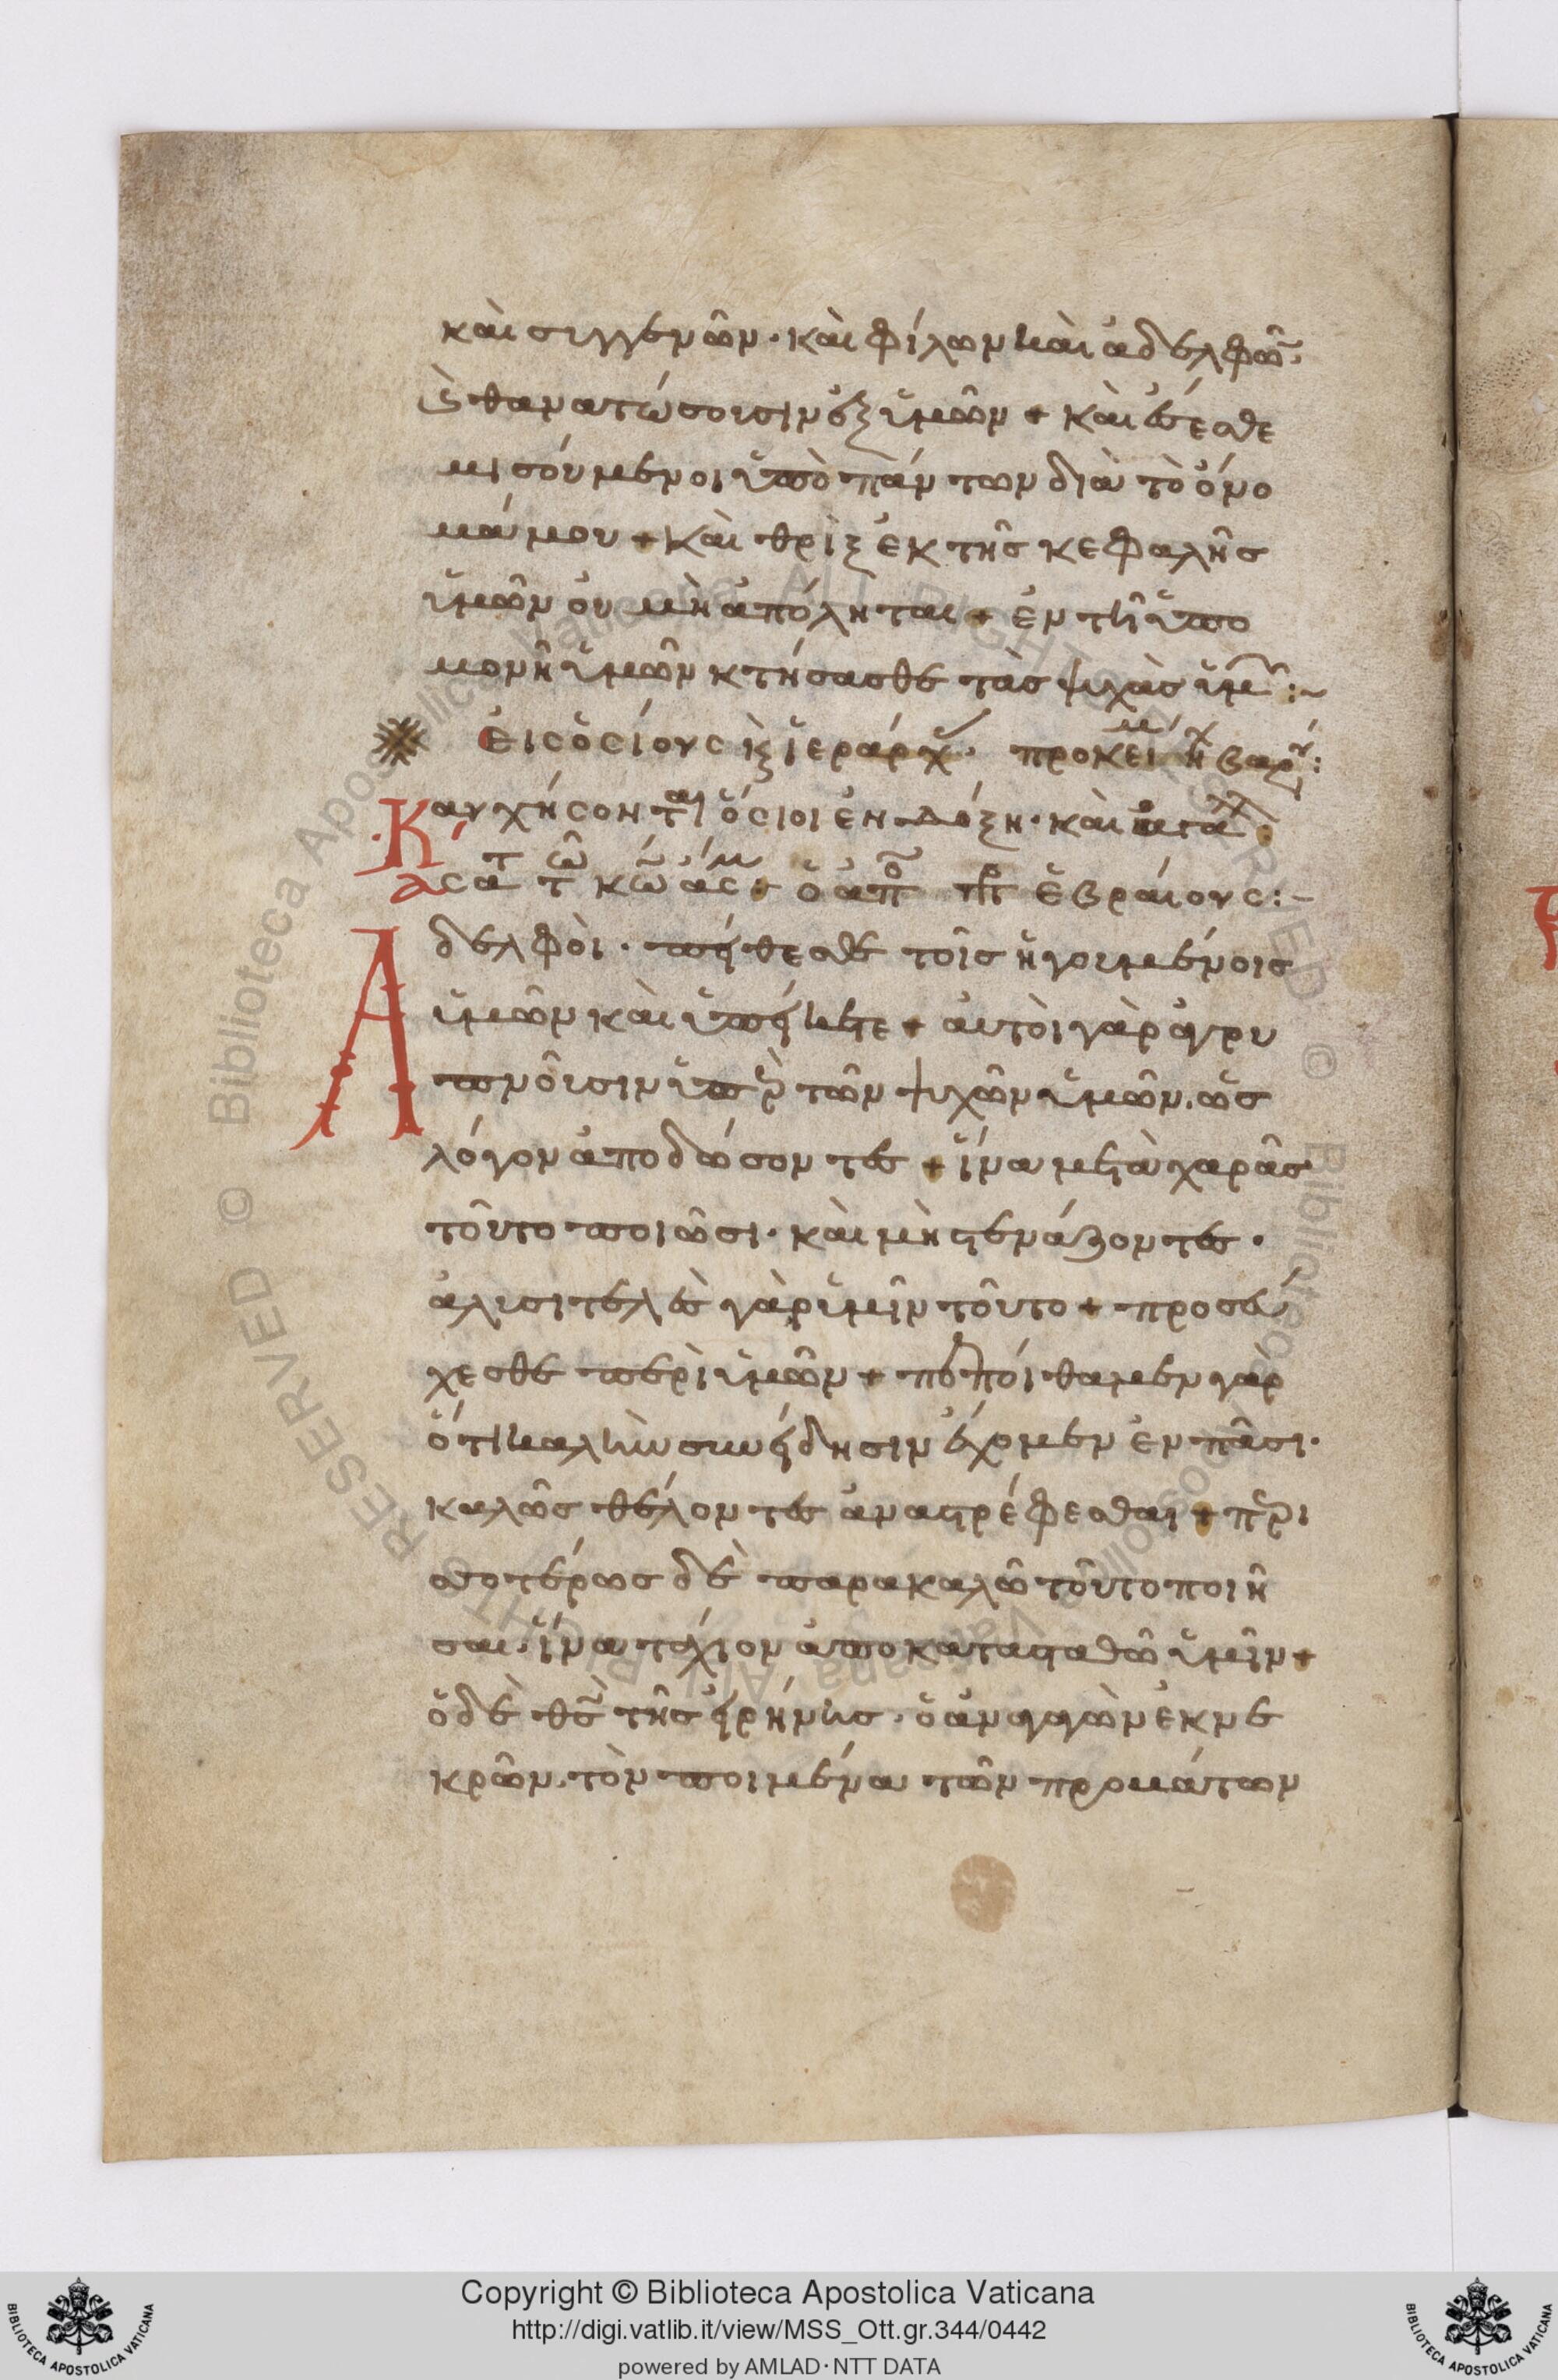 καὶ συγγενῶν· καὶ φίλων καὶ ἀδελφῶν·
καὶ θανατώσουσιν ἐξ ὑμῶν + καὶ ἔσεσθε
μισούμενοι ὑπὸ πάντων διὰ τὸ ὄνο
μά μου + καὶ θρὶξ ἐκ τῆς κεφαλῆς
ὑμῶν οὐ μὴ ἀπόληται + ἐν τῆ ὑπο
μονῆ ὑμῶν κτήσασθε τὰς ψυχὰς ὑμ :~
εἰς ὁσίους κ ἱεράρχ· προκεί μ ἦχ βαρύ:
Καυχήσονται ὅσιοι ἐν δόξη· καὶ
ᾄσατ τῶ κῶ ᾆσμ: ὁ ἀπο πρ ἑβραίους:-
Ἀδελφοὶ· πείθεσθε τοῖς ἡγουμένοις
ὑμῶν καὶ ὑπείκετε + αὐτοὶ γὰρ ἀγρυ
πνοῦσιν ὑπὲρ τῶν ψυχῶν ὑμῶν· ὡς
λόγον ἀποδώσοντες + ἵνα μετὰ χαρᾶς
τοῦτο ποιῶσι· καὶ μὴ στενάζοντες·
ἀλυσιτελὲς γὰρ ὑμῖν τοῦτο + προσεύ
χεσθε περὶ ὑμῶν + πεποίθαμεν γὰρ
ὅτι καλὴν συνείδησιν ἔχομεν ἐν πᾶσι·
καλῶς θέλοντες ἀναστρέφεσθαι + περι
σοτέρως δὲ παρακαλῶ τοῦτο ποιῆ
σαι· ἵνα τάχιον ἀποκατασταθῶ ὑμῖν +
ὁ δὲ θς τῆς εἰρήνης· ὁ ἀναγαγὼν ἐκ νε
κρῶν· τὸν ποιμένα τῶν προβάτων
Copyright © Biblioteca Apostolica Vaticana
http://digi.vatlib.it/view/MSS_Ott.gr.344/0442
powered by AMLAD·NTT DATA